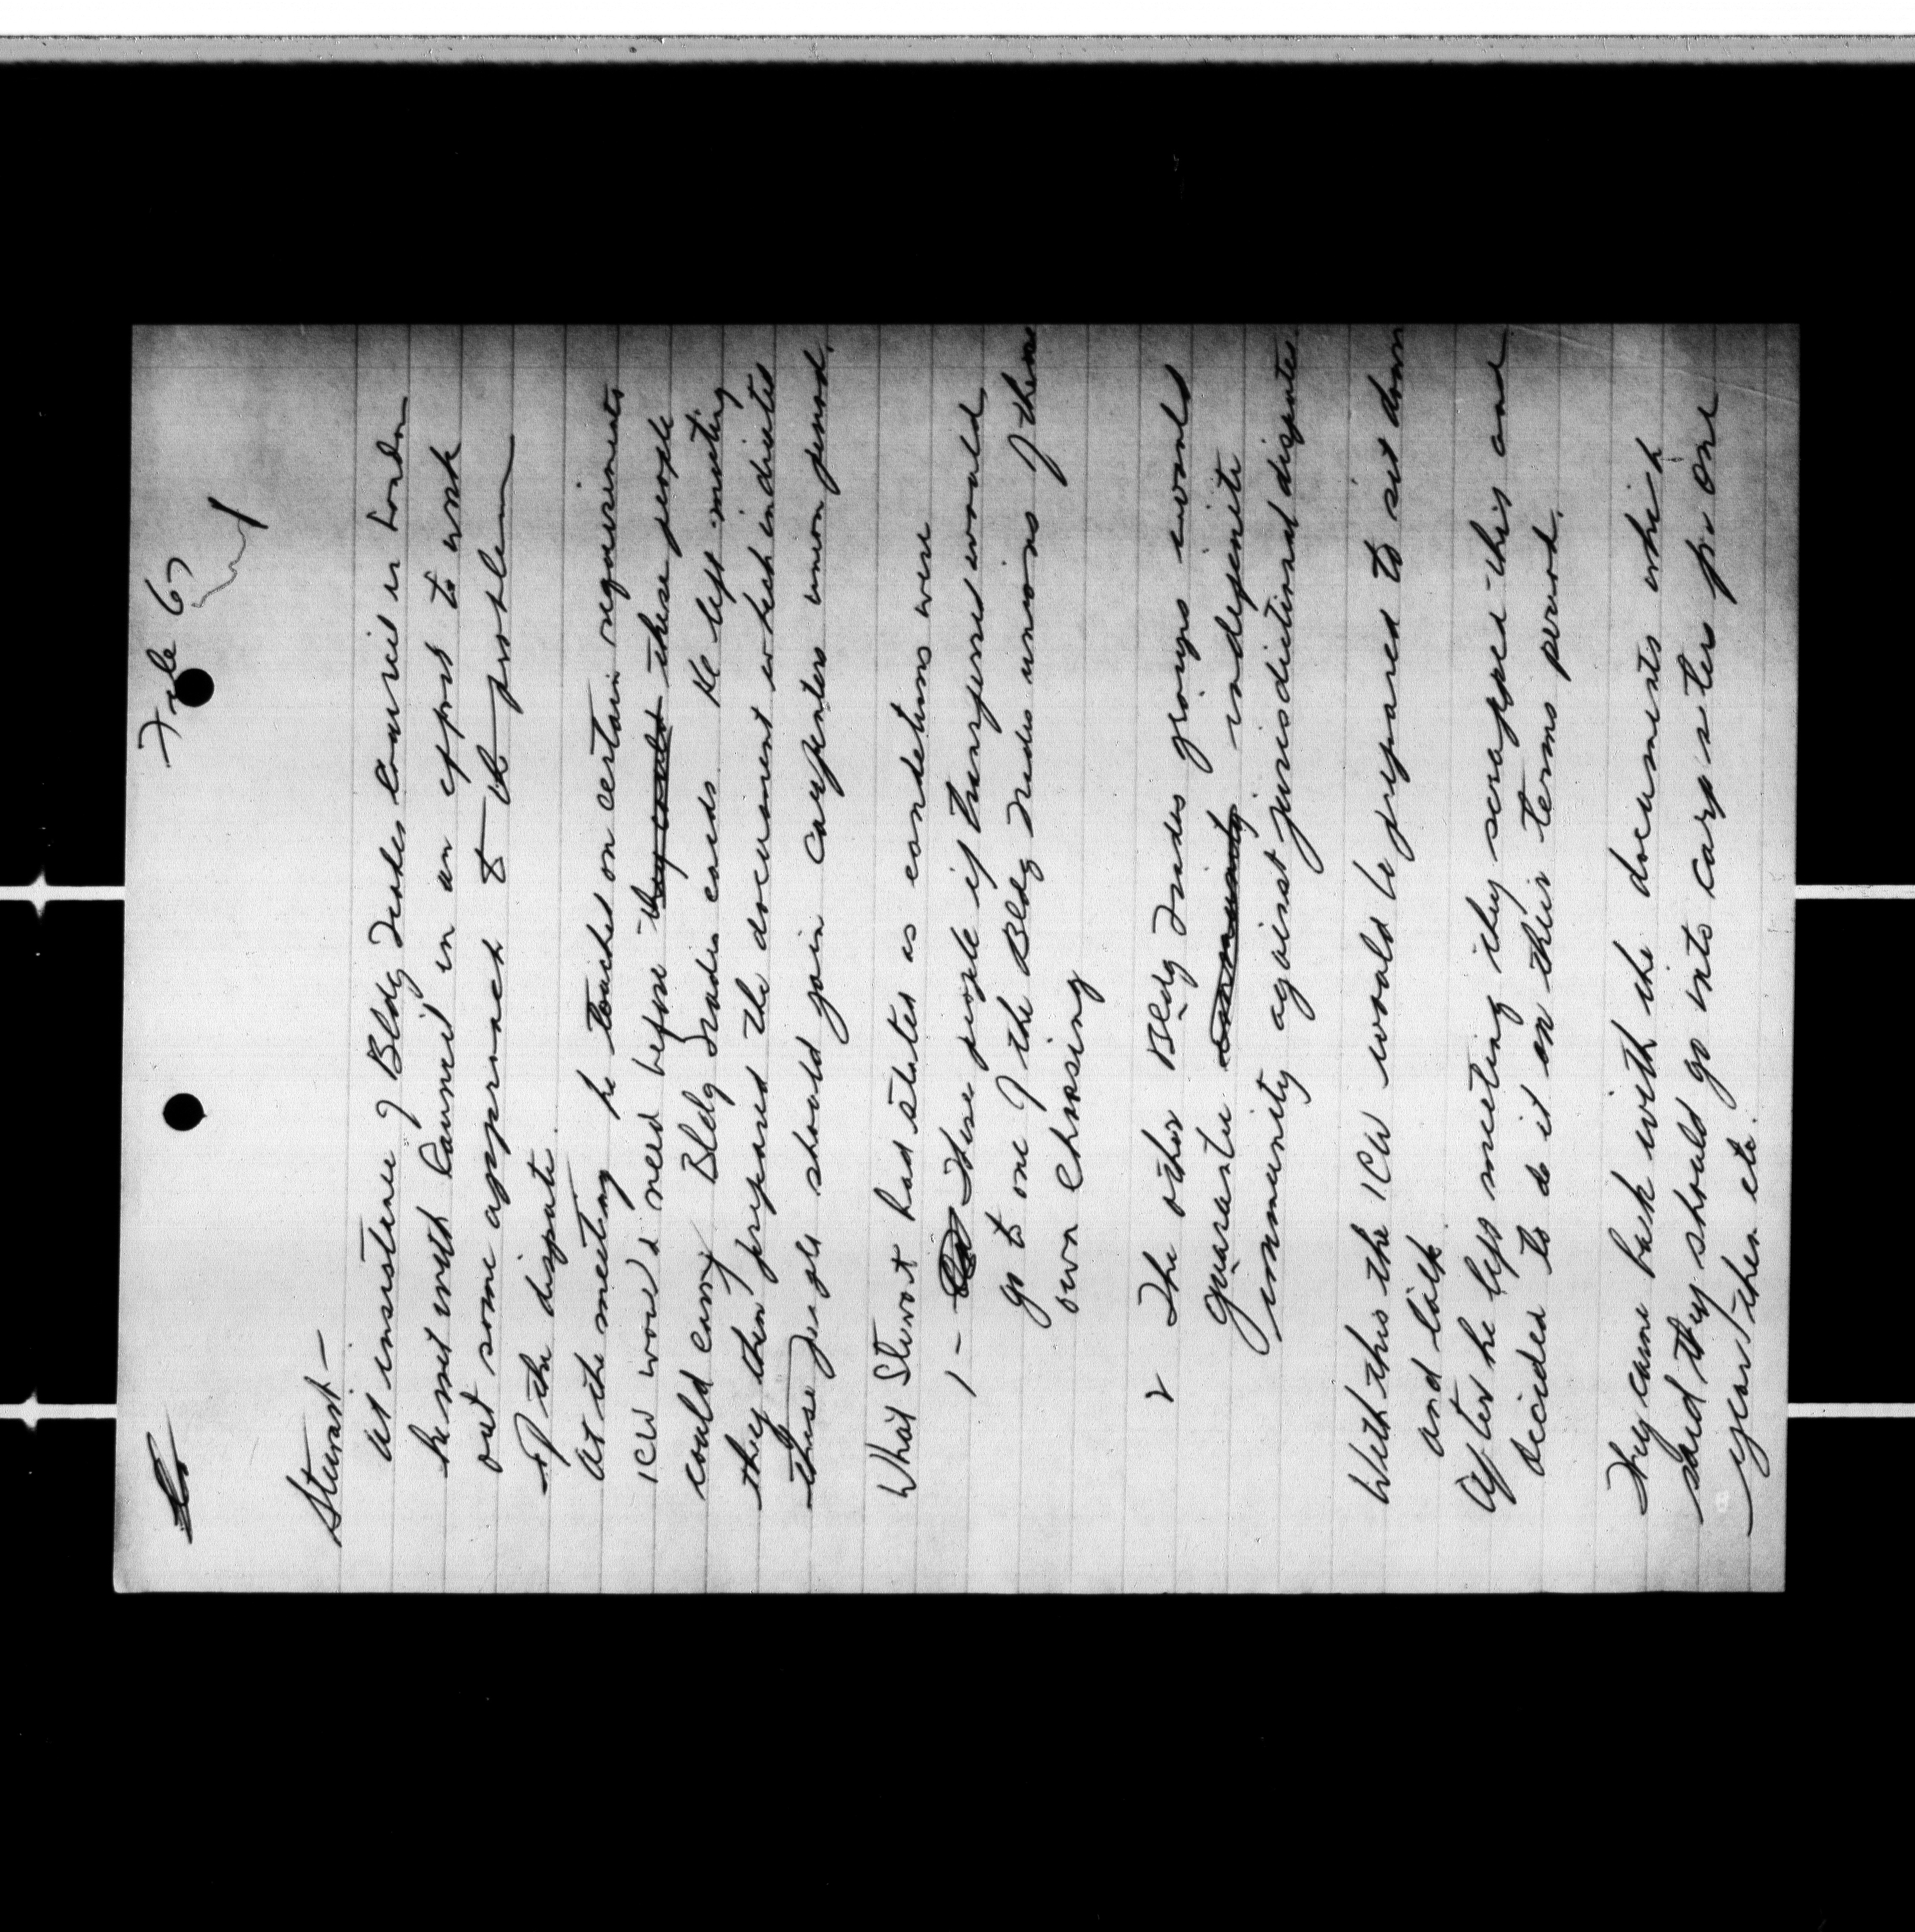 File 67
Stewart –
At insistence of Bldg Trades Council in London
he met with Council in an effort to work
out some approach to the problem
of the dispute.
At the meeting he touched on certain requirements
ICW would need before they could these people
could carry Bldg Trades cards. He left meeting
they then prepared the document which indicated
these people should join carpenters union period.
What Stewart had stated as conditions were
1 – These people if transferred would
go to one of the Bldg Trades unions of their
own choosing
2 The other Bldg Trades groups would
guarantee immunity indefinite
immunity against jurisdictional disputes
With this the ICW would be prepared to sit down
and talk.
After he left meeting they scrapped this and
decided to do it on their terms period.
They came back with the documents which
said they should go into carpenters for one
year then etc.